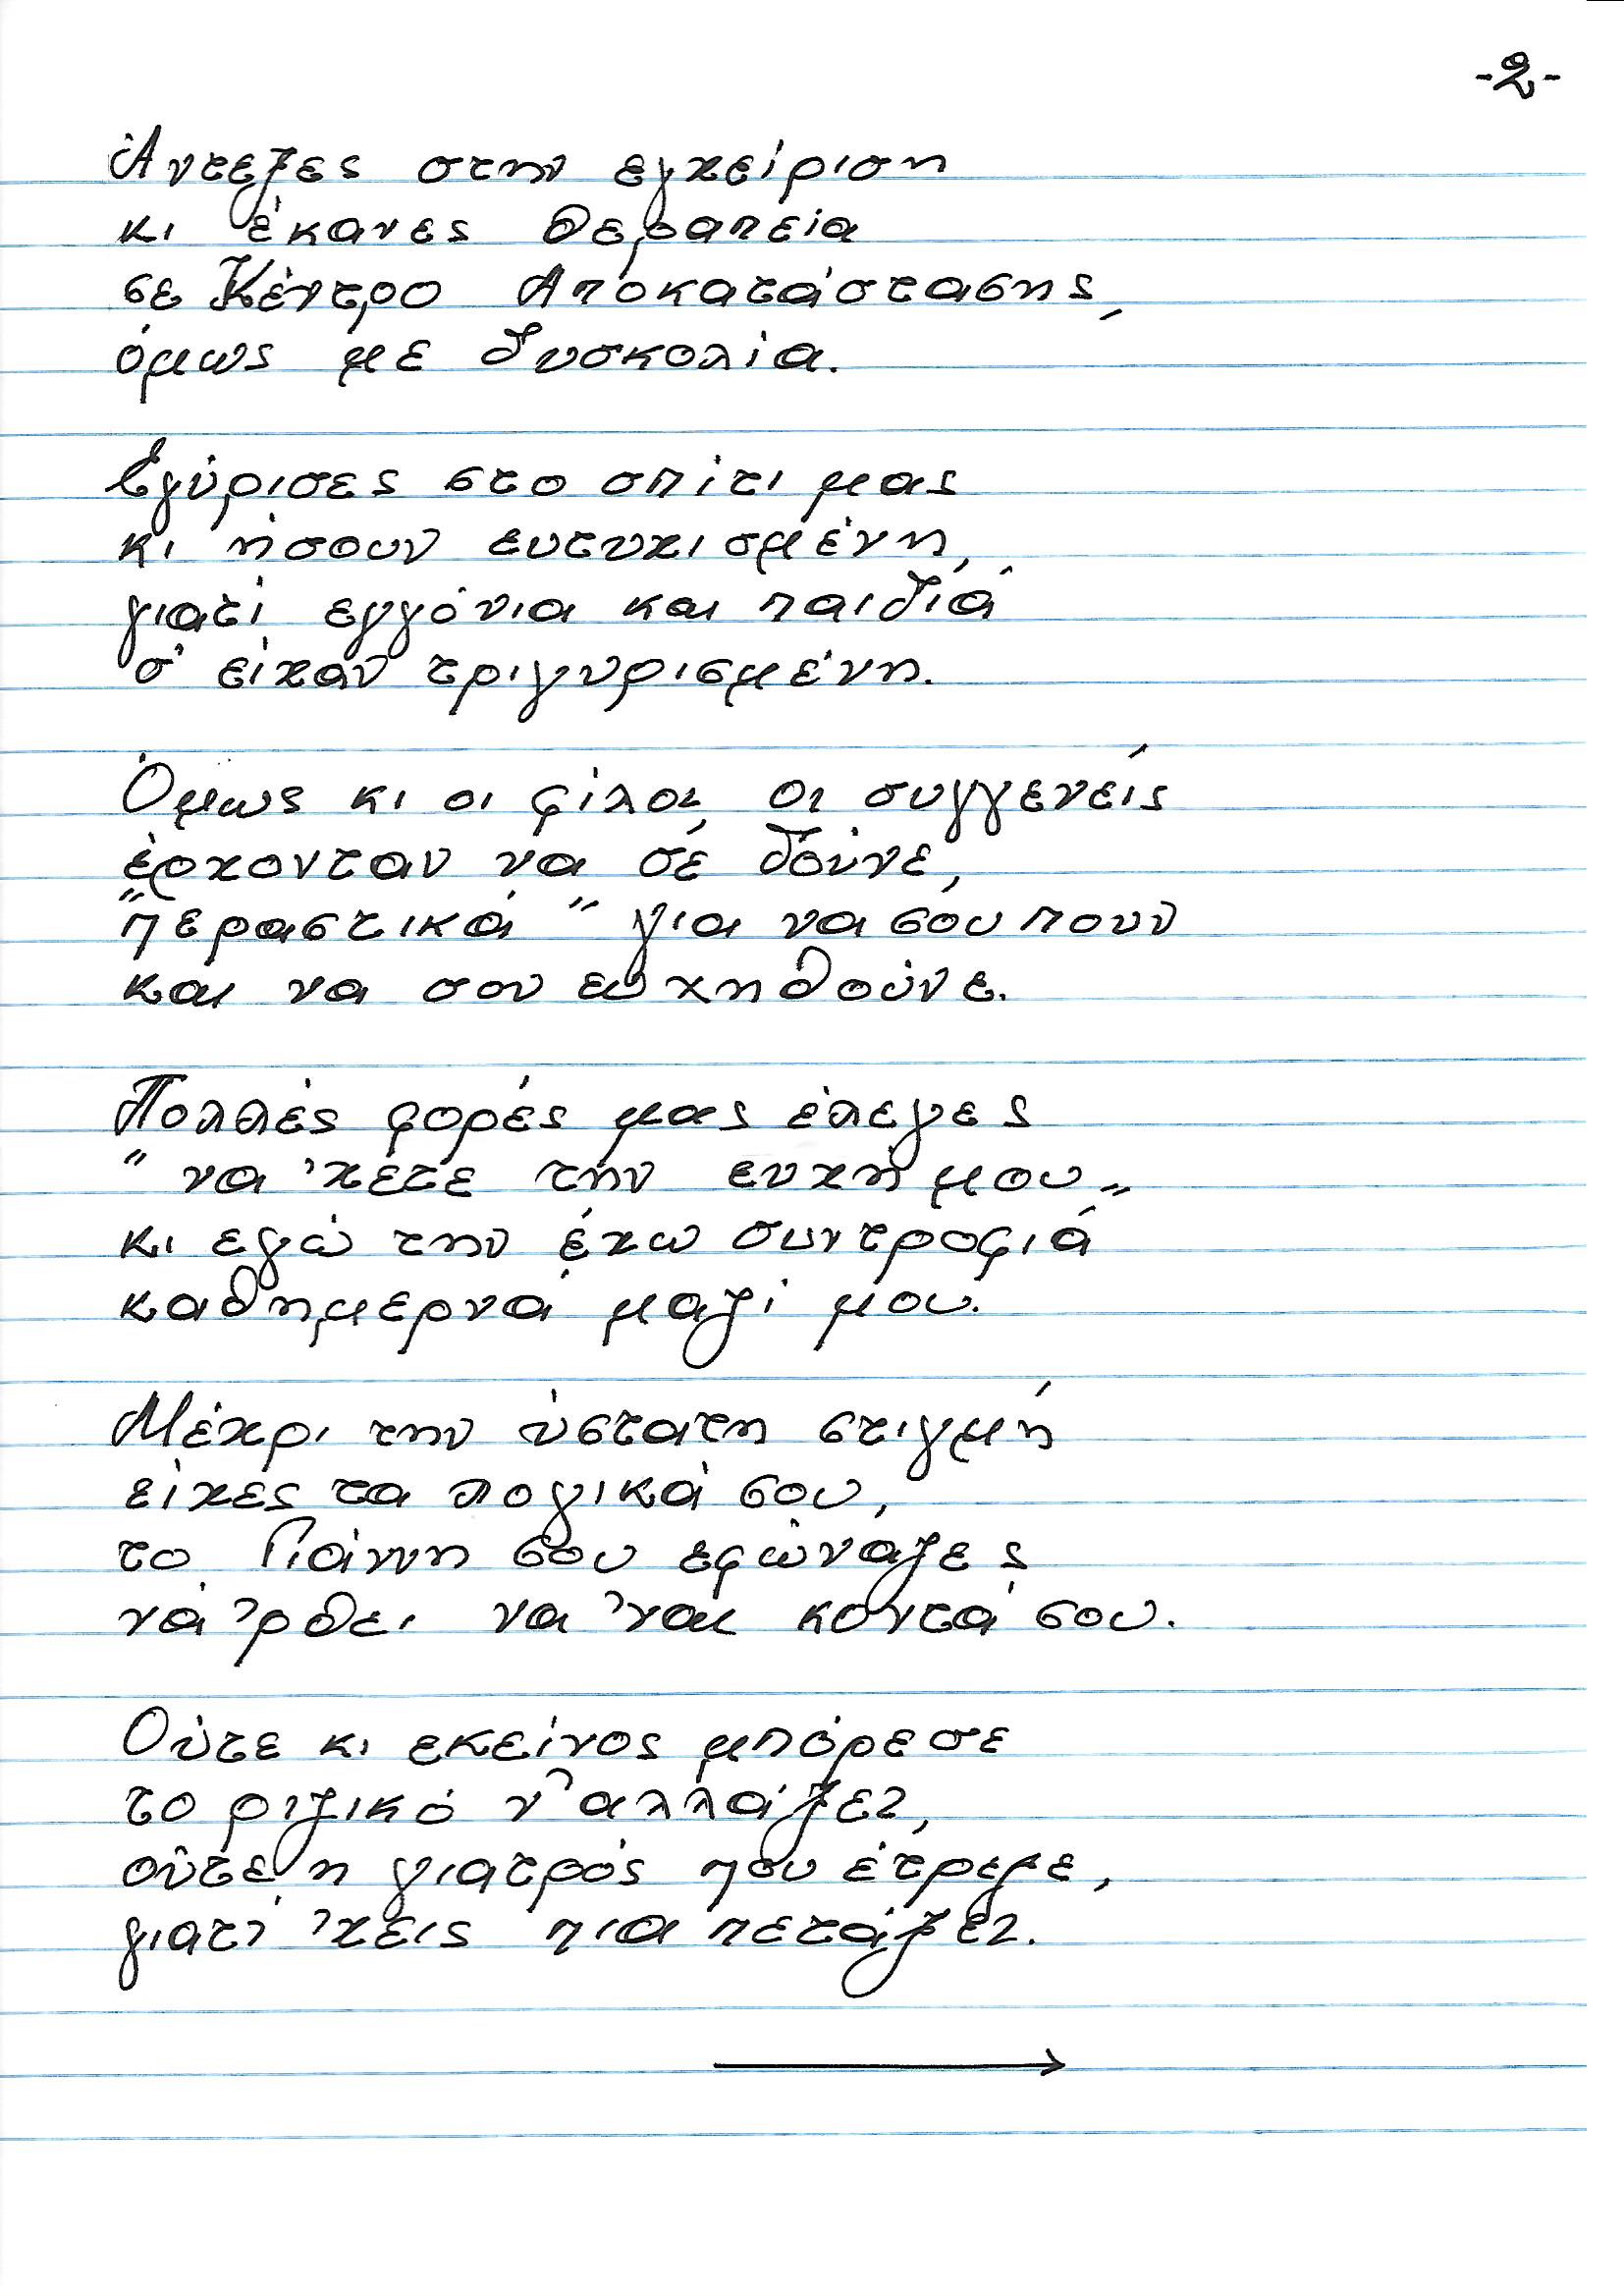 -2-
Άντεξες στην εγχείριση
κι έκανες θεραπεία
σε Κέντρο Αποκατάστασης,
όμως με δυσκολία.
Εγύρισες στο σπίτι μας
κι ήσουν ευτυχισμένη,
γιατί εγγόνια και παιδιά
σ' είχαν τριγυρισμένη.
Όμως κι οι φίλοι, οι συγγενείς
έρχονταν να σε δούνε,
"περαστικά" για να σου πουν
και να σου ευχηθούνε.
Πολλές φορές μας έλεγες
"να 'χετε την ευχή μου"
κι εγώ την έχω συντροφιά
καθημερνά μαζί μου.
Μέχρι την ύστατη στιγμή
είχες τα λογικά σου,
το Γιάννη σου εφώναζες
νά 'ρθει να 'ναι κοντά σου.
Ούτε κι εκείνος μπόρεσε
το ριζικό ν' αλλάξει,
ούτε η γιατρός που έτρεξε,
γιατί 'χεις πια πετάξει.